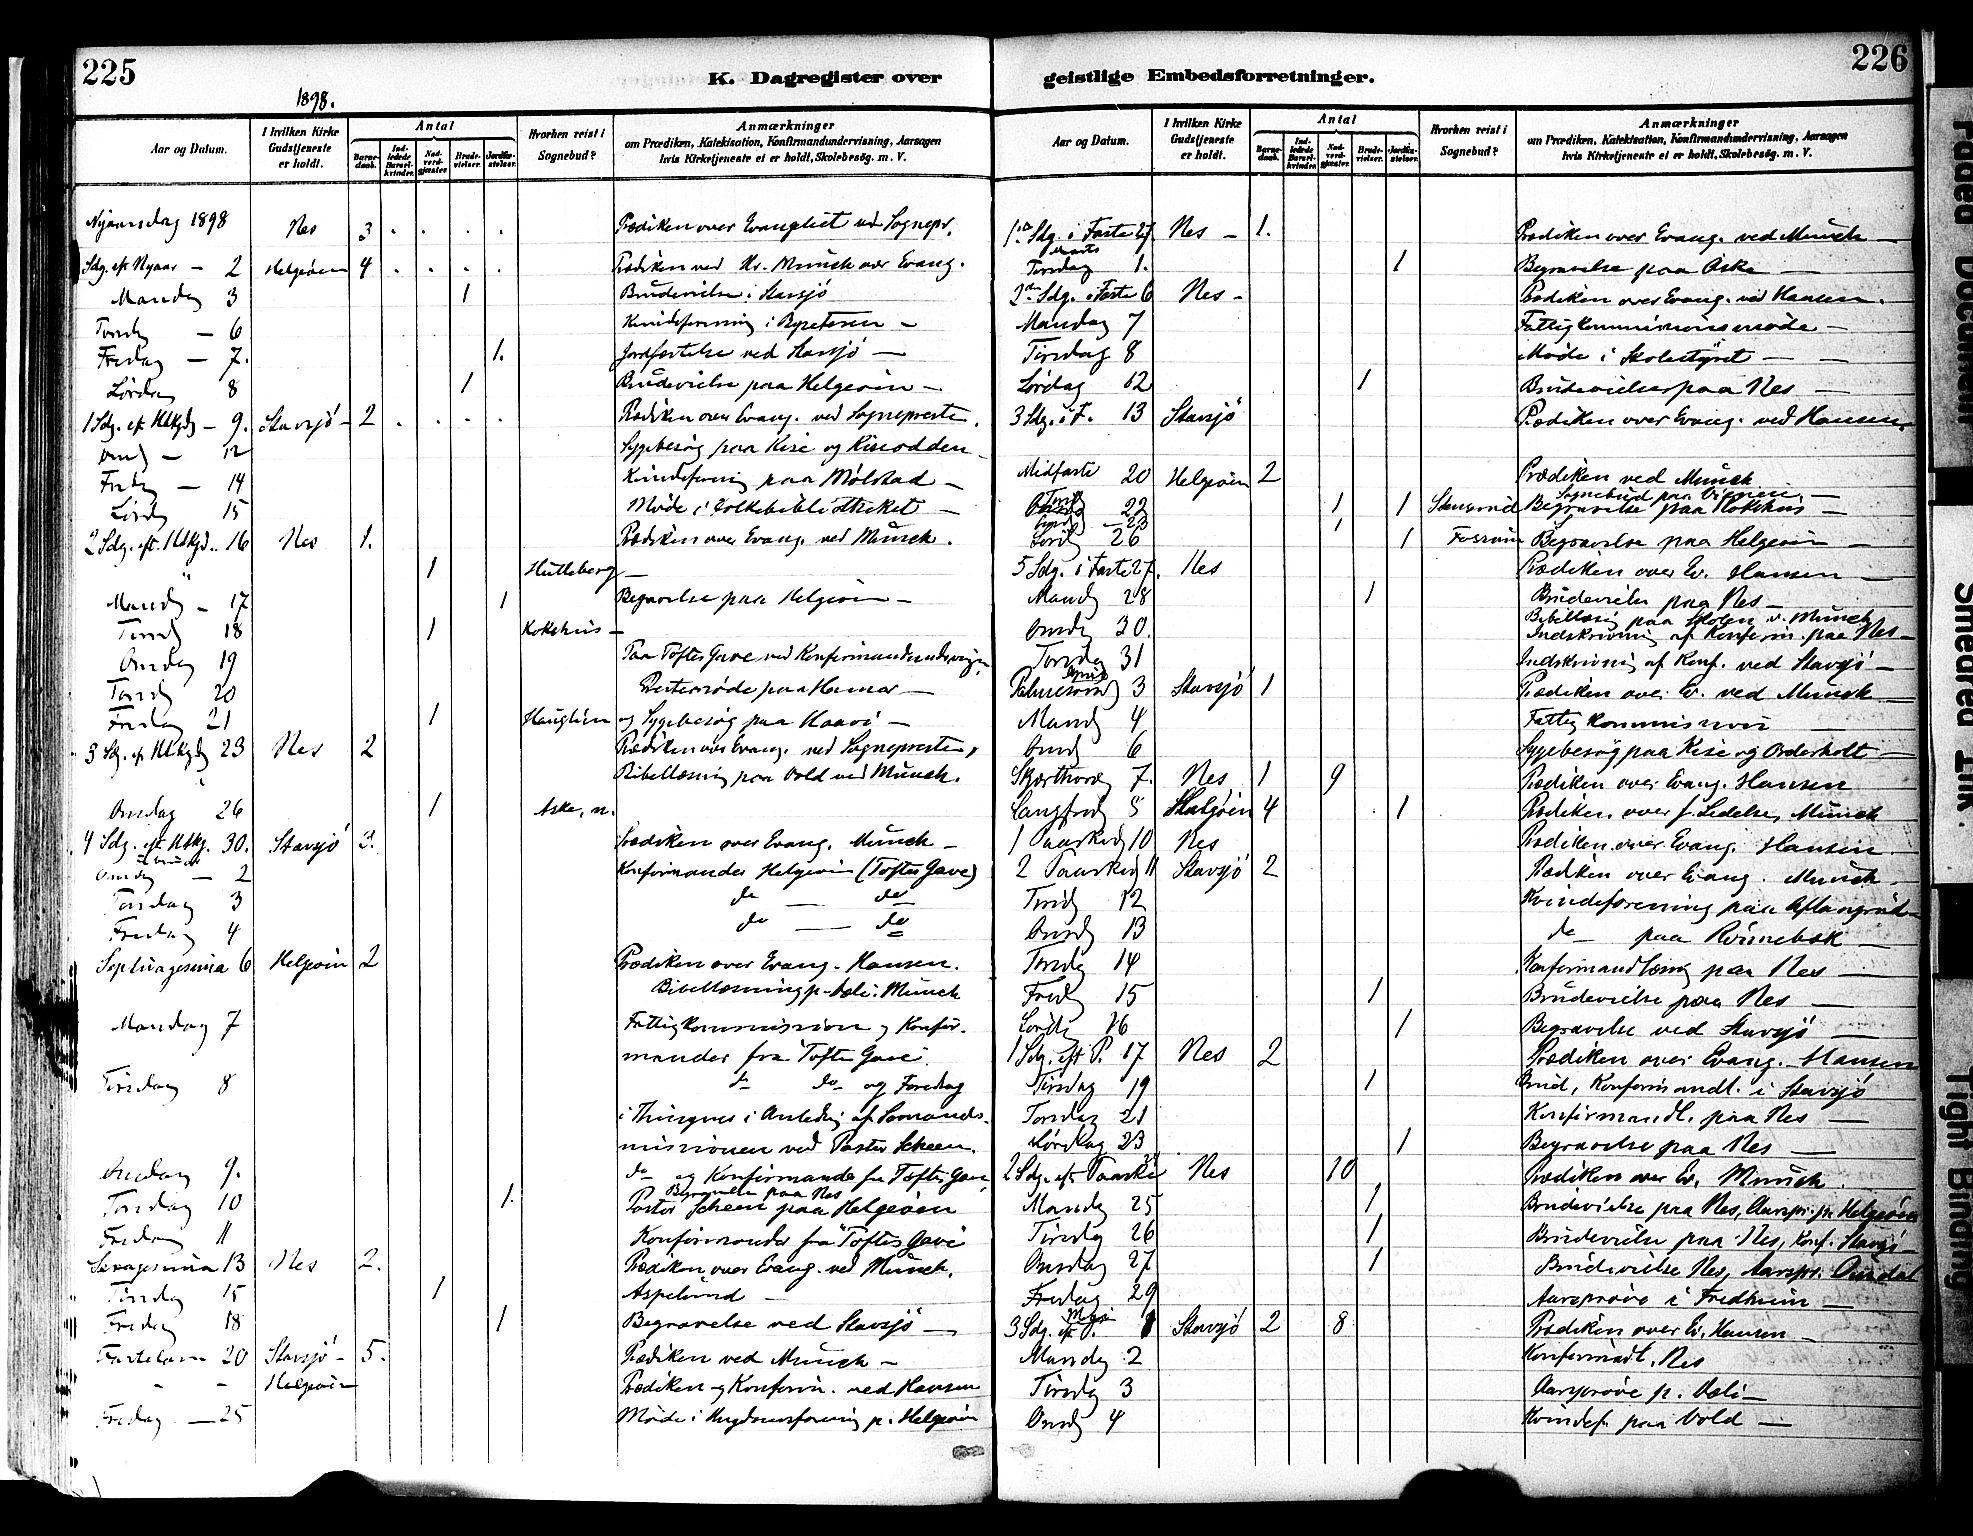 225
K. Dagregister over
1898.
Aar og Datum.
I hvilken Kirke Gudstjeneste er holdt.
Antal
Barnedaab.
Indledede Barselkvinder.
Nadverdgjæster.
Brudevielser.
Jordfæstelser.
Hvorhen reist i Sognebud?
Anmærkninger
om Prædiken, Katekisation, Konfirmandundervisning, Aarsagen hvis Kirketjeneste ei er holdt, Skolebesøg. m. V.
Nyaarsdag 1898 Nes 3 . . . . Prædiken over Evangliet ved Sognepr.
Sdg. eft Nyaar - 2 Helgeøen 4 . . . . Prædiken ved Hr. Munch over Evang.
Mandag 3 1 Brudevielse i Stavsjö
Torsdg - 6 Kvindeforening i
Fredag - 7. 1. Jordfæstelse ved Stavsjö -
Lördag 8 1 Brudevielse paa Helgeøen -
1 Sdg. eft Hllkgdg - 9. Stavsjö - 2 . . . . Prædiken over Evang. ved Sognepresten.
Onsdg - 12 Sygebesøg paa Kise og Kiseodden
Fredag - 14 Kvindeforening paa Mølstad -
Lördg 15 Møde i Folkebibliotheket -
2 Sdg. eft. Hllkgd. 16 Nes 1. Prædiken over Evang. ved Munch.
" 1 Hutteberg -
Mandg - 17 1 Begravelse paa Helgeøen -
Tirsdg 18 1 Kokshus -
Onsdag 19 Paa Toftes Gave ved Konfirmandundervisn.
Torsdg 20 Prestemøde paa Hamar -
Fredag 21 1 Hauglien og Sygebesøg paa -
3 Sdg. ef Hllkgdg 23 Nes 2 Prædiken over Evang. ved Sognepresten,
Bibellæsning paa Vold ved Munch.
Onsdag 26 1 Aske, n.
4 Sdg. eft Hllkg. 30. Stavsjö 3. Prædiken over Evang. Munch -
Februar
Onsdg - 2 Konfirmander Helgeøen (Toftes Gave)
Torsdag 3 do - do
Fredag 4 do - do
Septuagesima 6 Helgeøen 2 Prædiken over Evang. Hansen.
Bibellæsning p. Dæli: Munch
Mandag 7 Fattigkommission og Konfir-
mander fra Toftes Gave.
Tirsdag 8 do do og Foredrag
i Thingnes i Anledng af Sømands-
missionen ved Pastor Scheen.
Onsdag 9. do og Konfirmander fra Toftes Gave,
Begravelse paa Nes
Torsdag 10 1. Pastor Scheen paa Helgeøen
Fredag 11 Konfirmander fra Toftes Gave
Sexagesima 13 Nes 2. Prædiken over Evang. ved Munch.
Tirsdag 15 1 Aspelund -
Fredag 18 1 Begravelse ved Stavsjö -
Fastelavn 20 Stavsjö - 5. Prædiken ved Munch -
- - Helgeøen Prædiken og Konfirm. ved Hansen
Fredag - 25 Møde i Ungdomsforening p. Helgeøen
226
geistlige Embedsforretninger.
Aar og Datum.
I hvilken Kirke Gudstjeneste er holdt.
Antal
Barnedaab.
Indledede Barselkvinder.
Nadverdgjæster.
Brudevielser.
Jordfæstelser.
Hvorhen reist i Sognebud?
Anmærkninger
om Prædiken, Katekisation, Konfirmandundervisning, Aarsagen hvis Kirketjeneste ei er holdt, Skolebesög. m. V.
1ste Sdg. i Faste 27. Nes - 1. Prædiken over Evang. ved Munch -
Marts
Tirsdag 1. 1 Begravelse paa Aske -
2den Sdg. i Faste 6 Nes - Prædiken over Evang. ved Hansen.
Mandag 7 Fattigkommissionsmøde -
Tirsdag 8 Møde i Skolestyret -
Lördag 12 1 Brudevielse paa Nes -
3 Sdg. i F. 13 Stavsjö Prædiken over Evang. ved Hansen.
Midfaste 20 Helgeøen 2 Prædiken ved Munch
Sognebud paa
22 1 1 Begravelse paa Kokshus -
23 1
Lördg 26 1 Begravelse paa Helgeøen -
5 Sdg. i Faste 27. Nes Prædiken over Ev. Hansen -
Mandg 28 1 Brudevielse paa Nes -
Bibellæsng paa Skolen v. Munch
Onsdg 30. Indskrivning af Konfirm. paa Nes -
Torsdag 31 Indskrivning af Konf. ved Stavsjö -
April
Palmesönd. 3 Stavsjö 1 Prædiken over Ev. ved Munch
Mandg 4 Fattigkommission -
Onsd 6 Sygebesøg paa Kise og Oderholt -
Skjærthorsd. 7. Nes 1 9 Prædiken over Evang. Hansen
Langfred 8 Helgøen 4 1 Prædiken over J. Lidelse, Munch
1 Paaskedg 10 Nes Prædiken over Evang. Hansen
2 Paaskedg 11 Stavsjö 2 Prædiken over Evang. Munch.
Tirsdg 12 Kvindeforening paa
Onsdg 13 do paa Rönnebæk -
Torsdg 14 Konfirmandlæsng paa Nes -
Fredg 15 1 Brudevielse paa Nes -
Lördg 16 1 Begravelse ved Stavsjö -
1 Sdg. eft P. 17 Nes 2 Prædiken over Evang. Hansen
Tirsdag 19 1 Brud, Konfirmandl. i Stavsjö
Torsdag 21 Konfirmandl. paa Nes -
Lördag 23 1 Begravelse paa Nes -
2 Sdg. eft Paaske 24 Nes 10 Prædiken over Ev. Munch.
Mandag 25 1 Brudevielse paa Nes, Aarspr. p. Helgeøen
Tirsdag 26 1 Brudevielse paa Nes, Konf. Stavsjö -
Onsdag 27 1 Brudevielse Nes, Aarspr.
Fredag 29 Aarsprøve i Fredheim -
Mai
3 Sdg. ef P. 1 Stavsjö 2 8 Prædiken over Ev. Hansen -
Mandg 2 Konfirmandl. Nes
Tirsdg 3 Aarsprøve p. Dæli -
Onsdg 4 Kvindef. paa Vold -
Falded Document
Smedred Ink.
Tight Binding